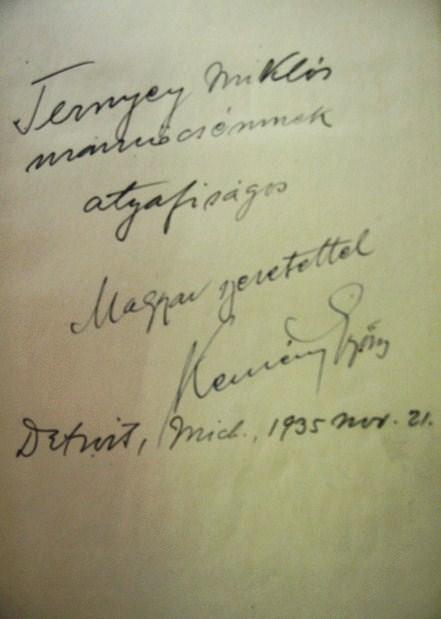 Ternyey Miklós
uramöcsémnek
atyafiságos
Magyar szeretettel
Kemény György
Detroit, Mich., 1935 nov. 21.